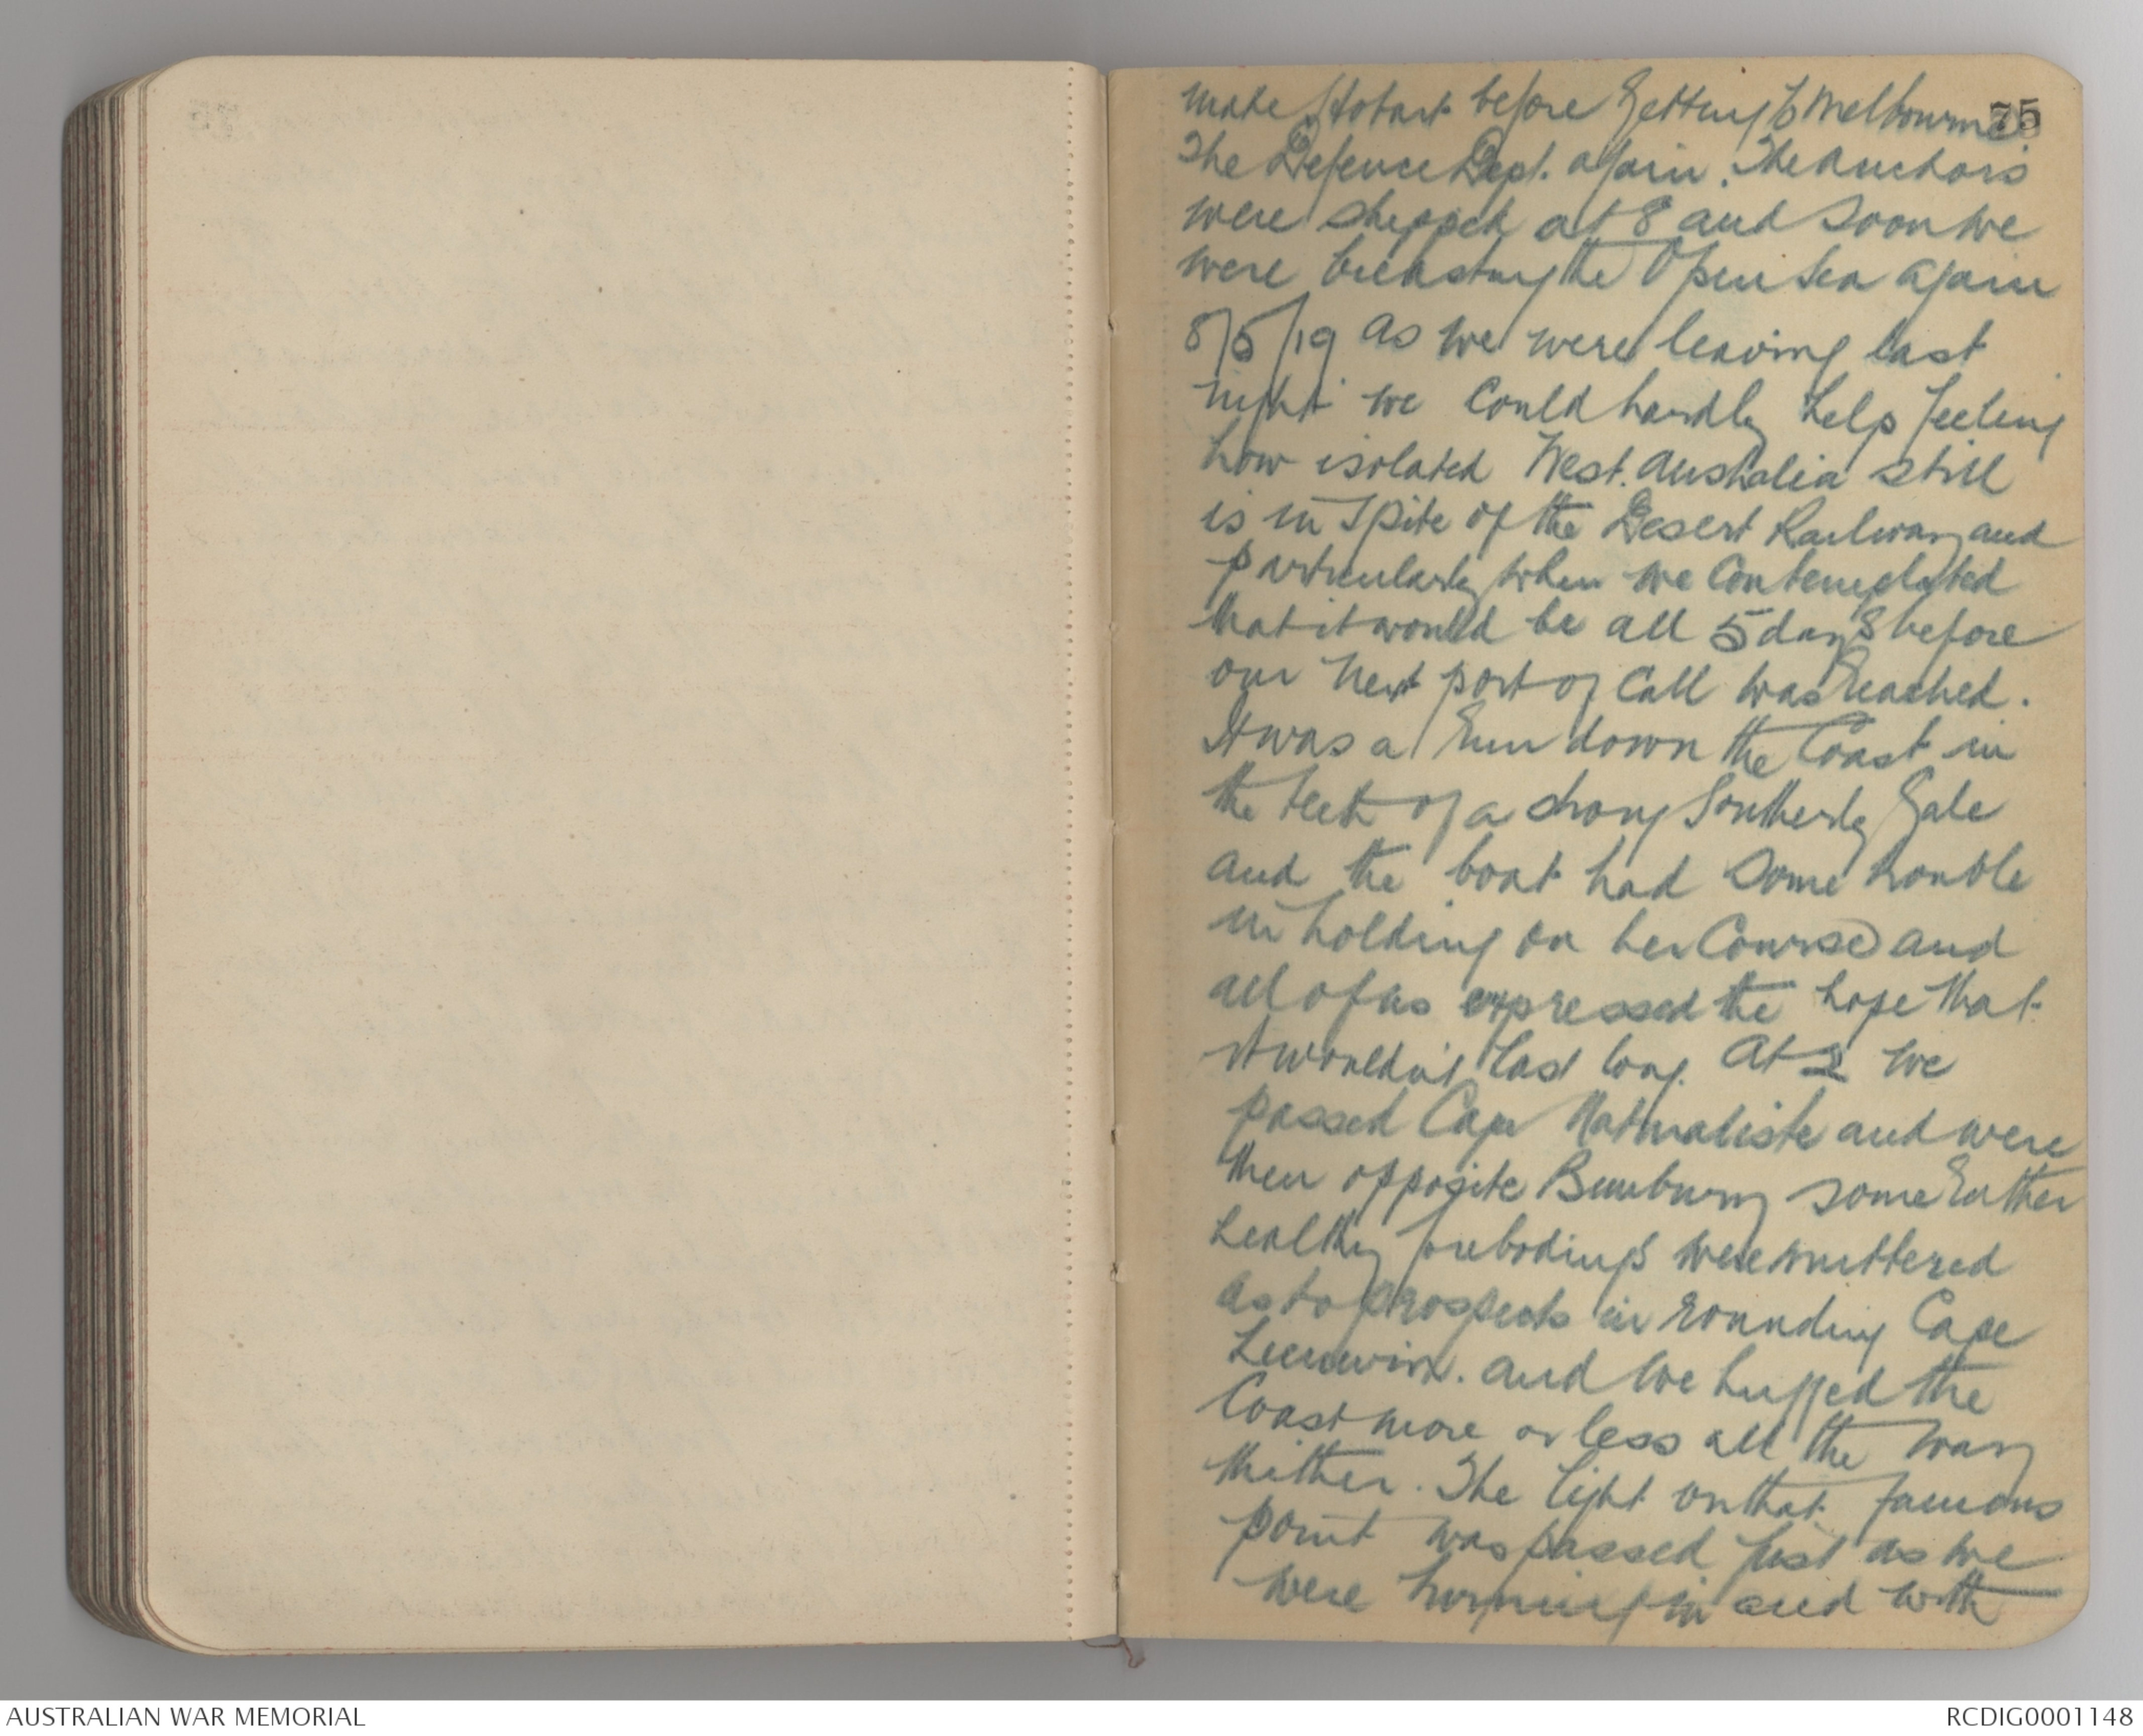 75
make Hobart before getting to Melbourne
The Defence Dept. again. The Anchors
were shipped at 8 and soon we
were breasting the Open Sea again
8/5/19 As we were leaving last
night we could hardly help feeling
how isolated West. Australia still
is in spite of the Desert Railway and
particularly when we contemplated
that it would be all 5 days before
our next port of call was reached.
It was a run down the Coast in
the teeth of a strong Southerly Gale
and the boat had some trouble
in holding on her Course and
all of us expressed the hope that
it wouldn't last long. At 2 we
passed Cape Naturaliste and were
then opposite Bunbury some rather
healthy forebodings were muttered
as to prospects in rounding Cape
Leeuwin. and we hugged the
Coast more or less all the way
thither. The light on that famous
point was passed just as we
were turning in and with
AUSTRALIAN WAR MEMORIAL
RCDIG0001148